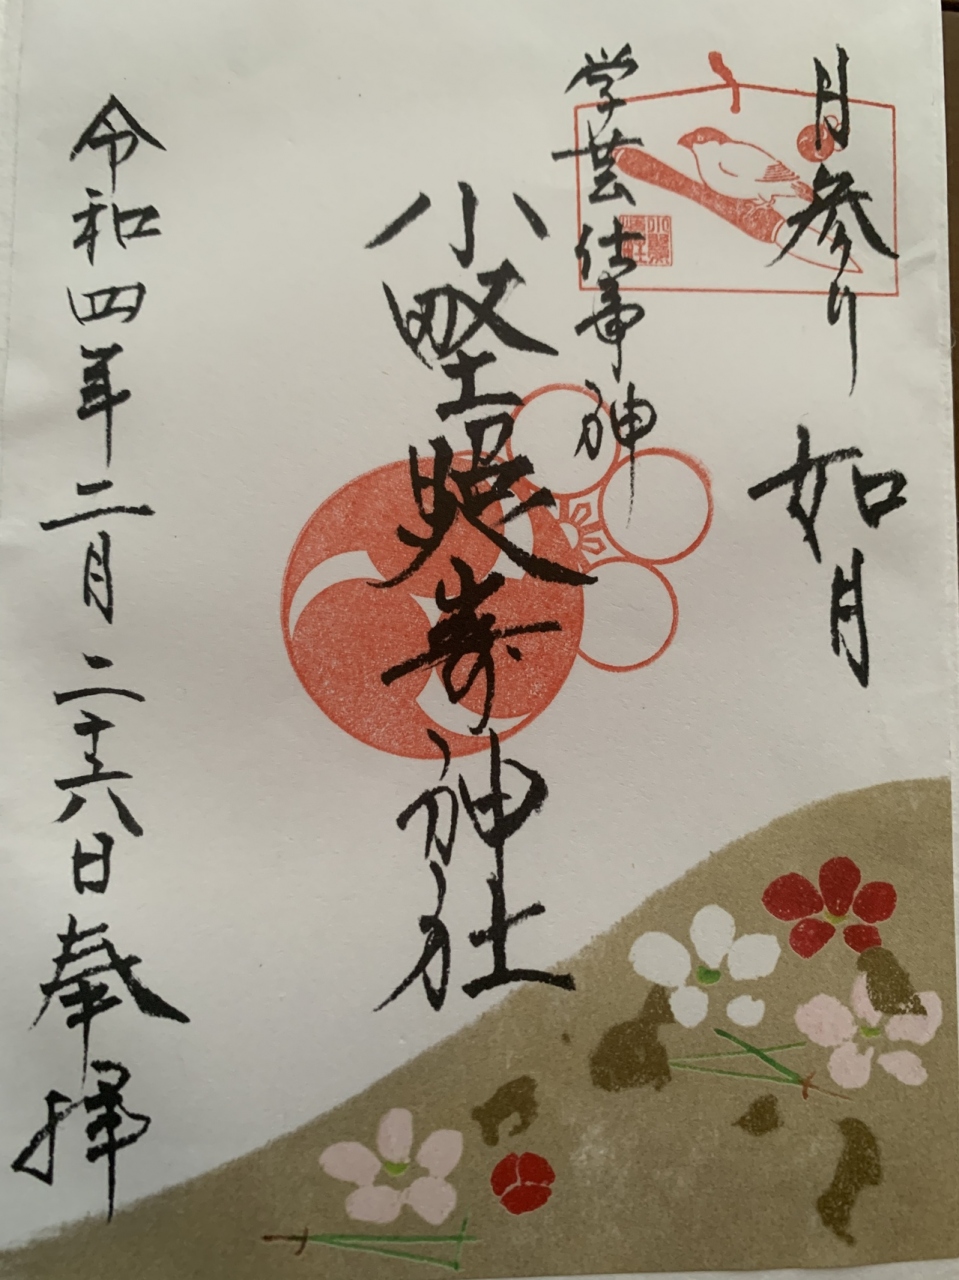 月参り 如月
学芸仕事神
小野照嵜神社
令和四年二月二十六日奉拝